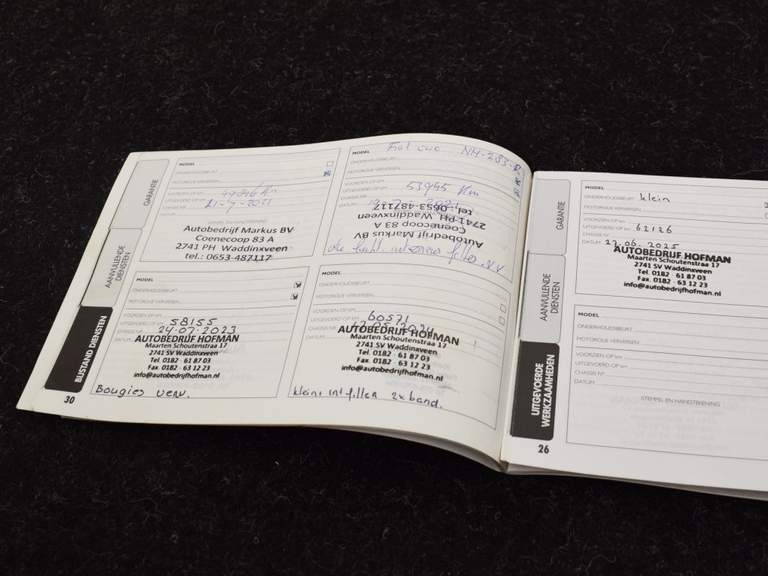 GARANTIE
AANVULLENDE DIENSTEN
BIJSTAND DIENSTEN
MODEL
ONDERHOUDSBEURT
MOTOROLIE VERVERSEN
21-4-2021
Autobedrijf Markus BV
Coenecoop 83 A
2741 PH Waddinxveen
tel.: 0653-487117
MODEL
NH-283-
ONDERHOUDSBEURT
MOTOROLIE VERVERSEN
53945 Km
Autobedrijf Markus BV
Coenecoop 83 A
2741 PH Waddinxveen
tel.: 0653-487117
MODEL
ONDERHOUDSBEURT
MOTOROLIE VERVERSEN
58155
24-07-2023
AUTOBEDRIJF HOFMAN
Maarten Schoutenstraat 17
2741 SV Waddinxveen
Tel. 0182 - 61 87 03
Fax. 0182 - 63 12 23
info@autobedrijfhofman.nl
Bougies verv.
MODEL
ONDERHOUDSBEURT
MOTOROLIE VERVERSEN
60571
AUTOBEDRIJF HOFMAN
Maarten Schoutenstraat 17
2741 SV Waddinxveen
Tel. 0182 - 61 87 03
Fax. 0182 - 63 12 23
info@autobedrijfhofman.nl
2x band.
30
GARANTIE
AANVULLENDE DIENSTEN
UITGEVOERDE WERKZAAMHEDEN
MODEL
ONDERHOUDSBEURT klein
MOTOROLIE VERVERSEN
VOORZIEN OP km
UITGEVOERD OP km 62126
CHASSIS N°
DATUM 27.06.2025
AUTOBEDRIJF HOFMAN
Maarten Schoutenstraat 17
2741 SV Waddinxveen
Tel. 0182 - 61 87 03
Fax. 0182 - 63 12 23
info@autobedrijfhofman.nl
MODEL
ONDERHOUDSBEURT
MOTOROLIE VERVERSEN
VOORZIEN OP km
UITGEVOERD OP km
CHASSIS N°
DATUM
STEMPEL EN HANDTEKENING
26